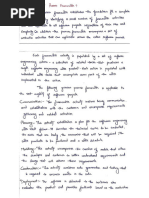 Process Framework :
A process framework establishes the foundation for a complete
software process by identifying a small number of framework activities
that are applicable to all software projects, regardless of their size or
complexity. In addition, the process framework encompasses a set of
umbrella activities that are applicable across the entire software process.
Each framework activity is populated by a set of software
engineering actions - a collection of related tasks that produces a
major software engineering work product
individual work tasks that accomplish some part of the work
implied by the action.
The following generic process framework is applicable to
the vast majority of software projects.
Communication: This framework activity involves heavy communication
and collaboration with the customer and encompasses requirements
gathering and related activities.
Planning: This activity establishes a plan for the software engineering
work that follows. It describes the technical tasks to be conducted,
the risks that are likely, the resources that will be required, the
work products to be produced, and a work schedule.
Modeling: This activity encompasses the creation of models that allow
the developer and the customer to better understand software requirements
and the design that will achieve those requirements.
Construction: This activity combines code generation and testing that is
required to uncover errors in the code.
Deployment: The software is delivered to the customer who
evaluates the delivered product and provides feedback based on the evaluation.